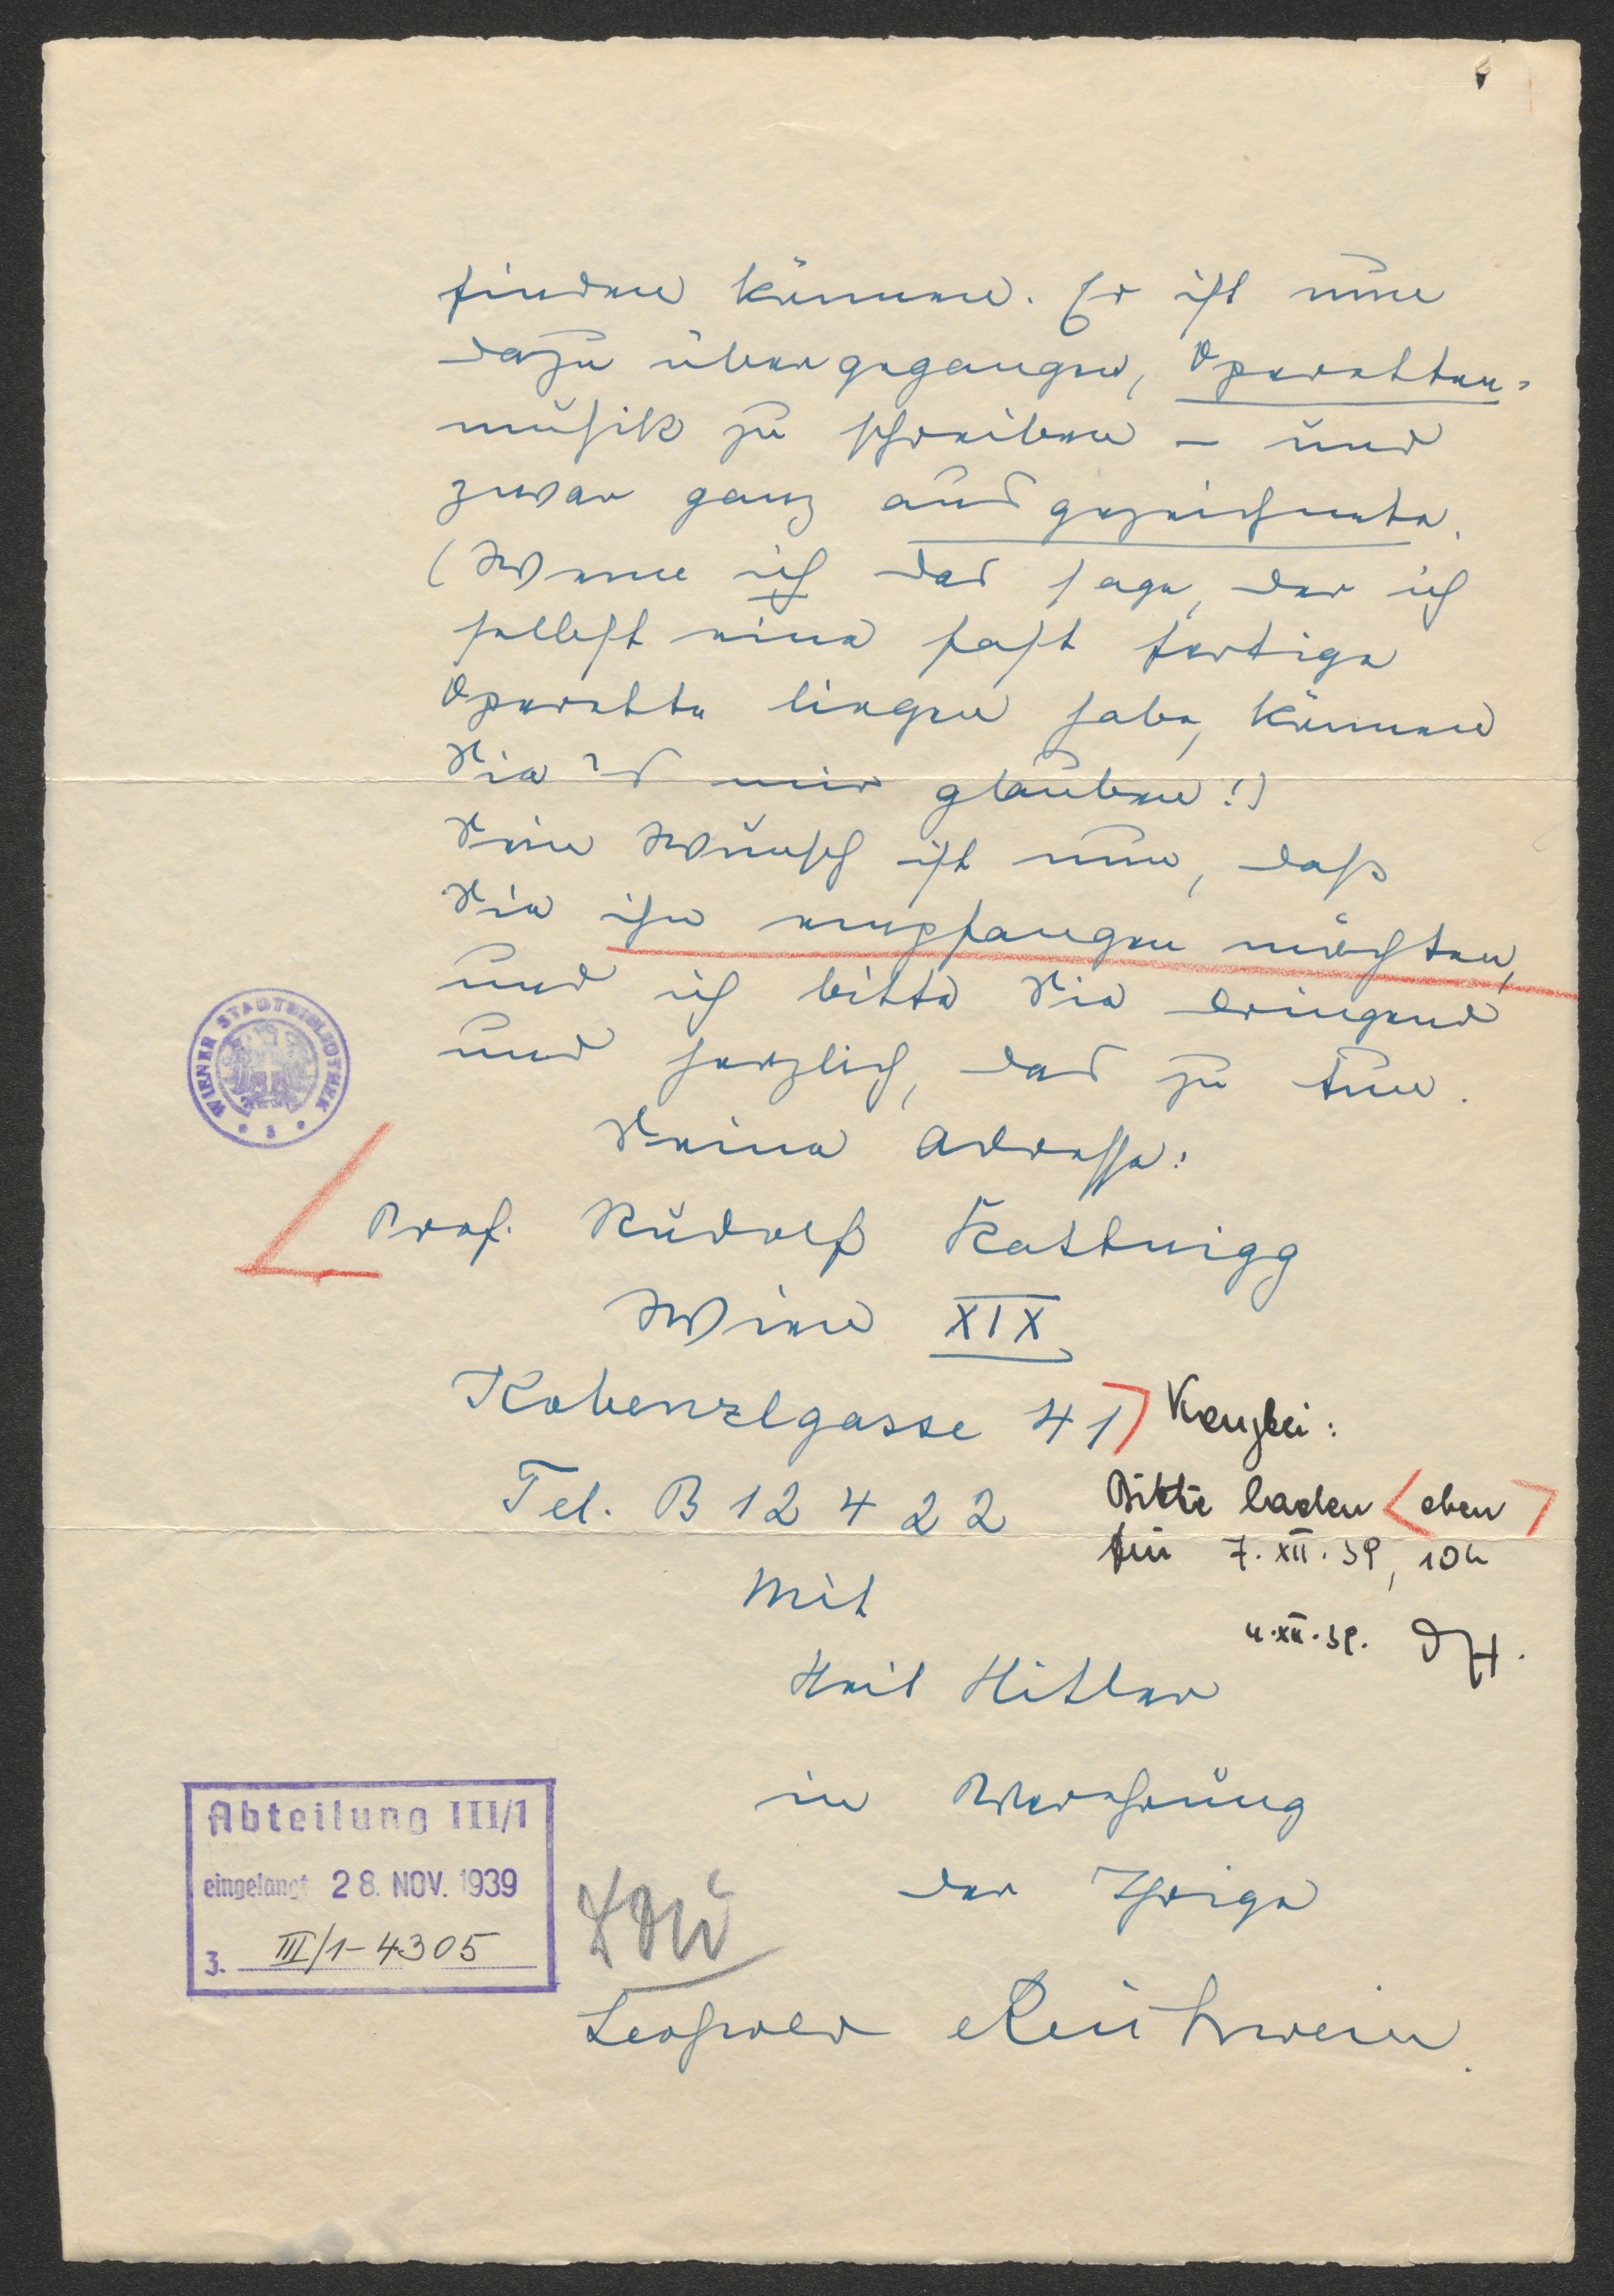 finden können. Er ist nun
dazu übergegangen, Operetten-
musik zu schreiben – und
zwar ganz ausgezeichnete.
(Wenn ich das sage, der ich
selbst eine fast fertige
Operette liegen habe, können
Sie es mir glauben!)
Sein Wunsch ist nun, daß
Sie ihn empfangen möchten,
und ich bitte Sie dringend
und herzlich, das zu tun.
WIENER STADTBIBLIOTHEK
Seine Adresse:
Prof. Rudolf Kattnigg
Wien XIX
Kobenzlgasse 41
Tel. B 12 4 22
Kanzlei:
Bitte laden <eben>
für 7. XII. 39, 10h
4. XII. 39. DH.
Mit
Heil Hitler
in Verehrung
der Ihrige
Leopold Reichwein.
Abteilung III/1
eingelangt 28. NOV. 1939
3. III/1-4305